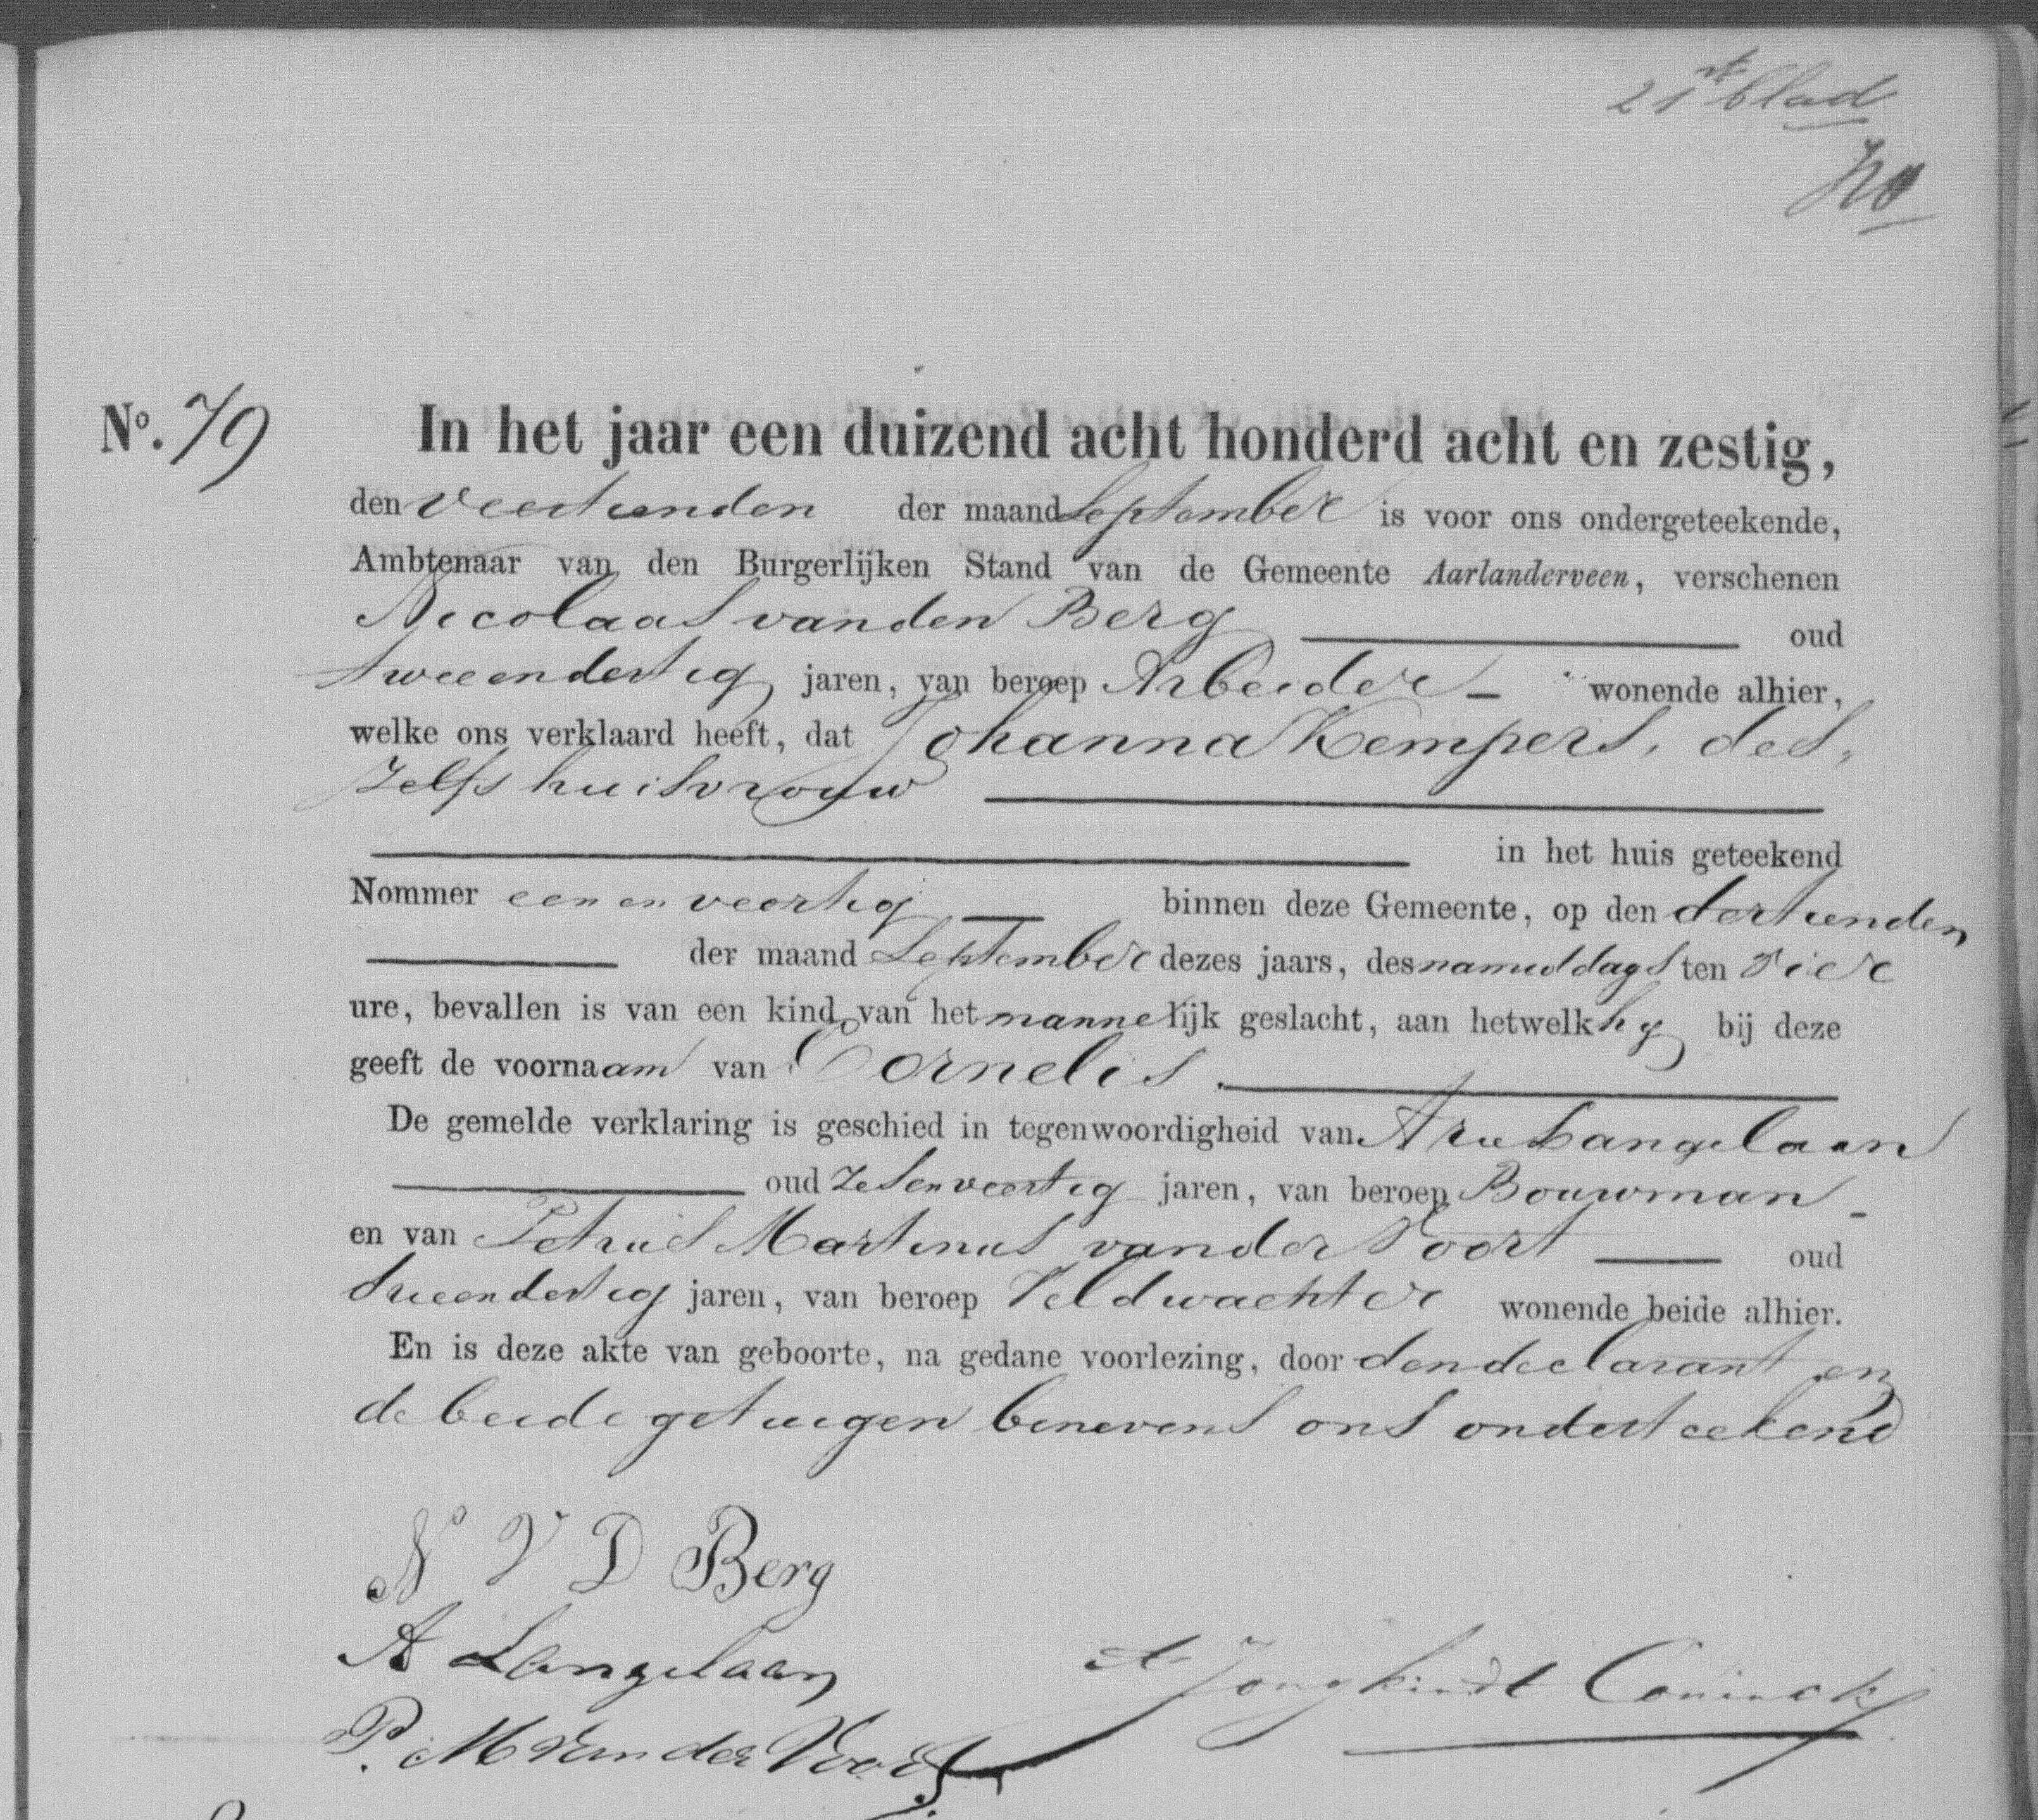 21ste blad
No. 79
In het jaar een duizend acht honderd acht en zestig,
den veertienden der maand September is voor ons ondergeteekende,
Ambtenaar van den Burgerlijken Stand van de Gemeente Aarlanderveen, verschenen
Nicolaas van den Berg oud
twee en dertig jaren, van beroep Arbeider wonende alhier,
welke ons verklaard heeft, dat Johanna Kempers, des,
zelfs huisvrouw
in het huis geteekend
Nommer een en veertig binnen deze Gemeente, op den dertienden
der maand September dezes jaars, des namiddags ten vier
ure, bevallen is van een kind van het mannelijk geslacht, aan hetwelk hij bij deze
geeft de voornaam van Cornelis.
De gemelde verklaring is geschied in tegenwoordigheid van Arie Langelaan
oud zes en veertig jaren, van beroep Bouwman
en van Petrus Martinus van der Voort oud
drie en dertig jaren, van beroep Veldwachter wonende beide alhier.
En is deze akte van geboorte, na gedane voorlezing, door den declarant en
de beide getuigen benevens ons onderteekend
N V D Berg
A Langelaan
A Jongkindt Coninck
P. M van der Voort